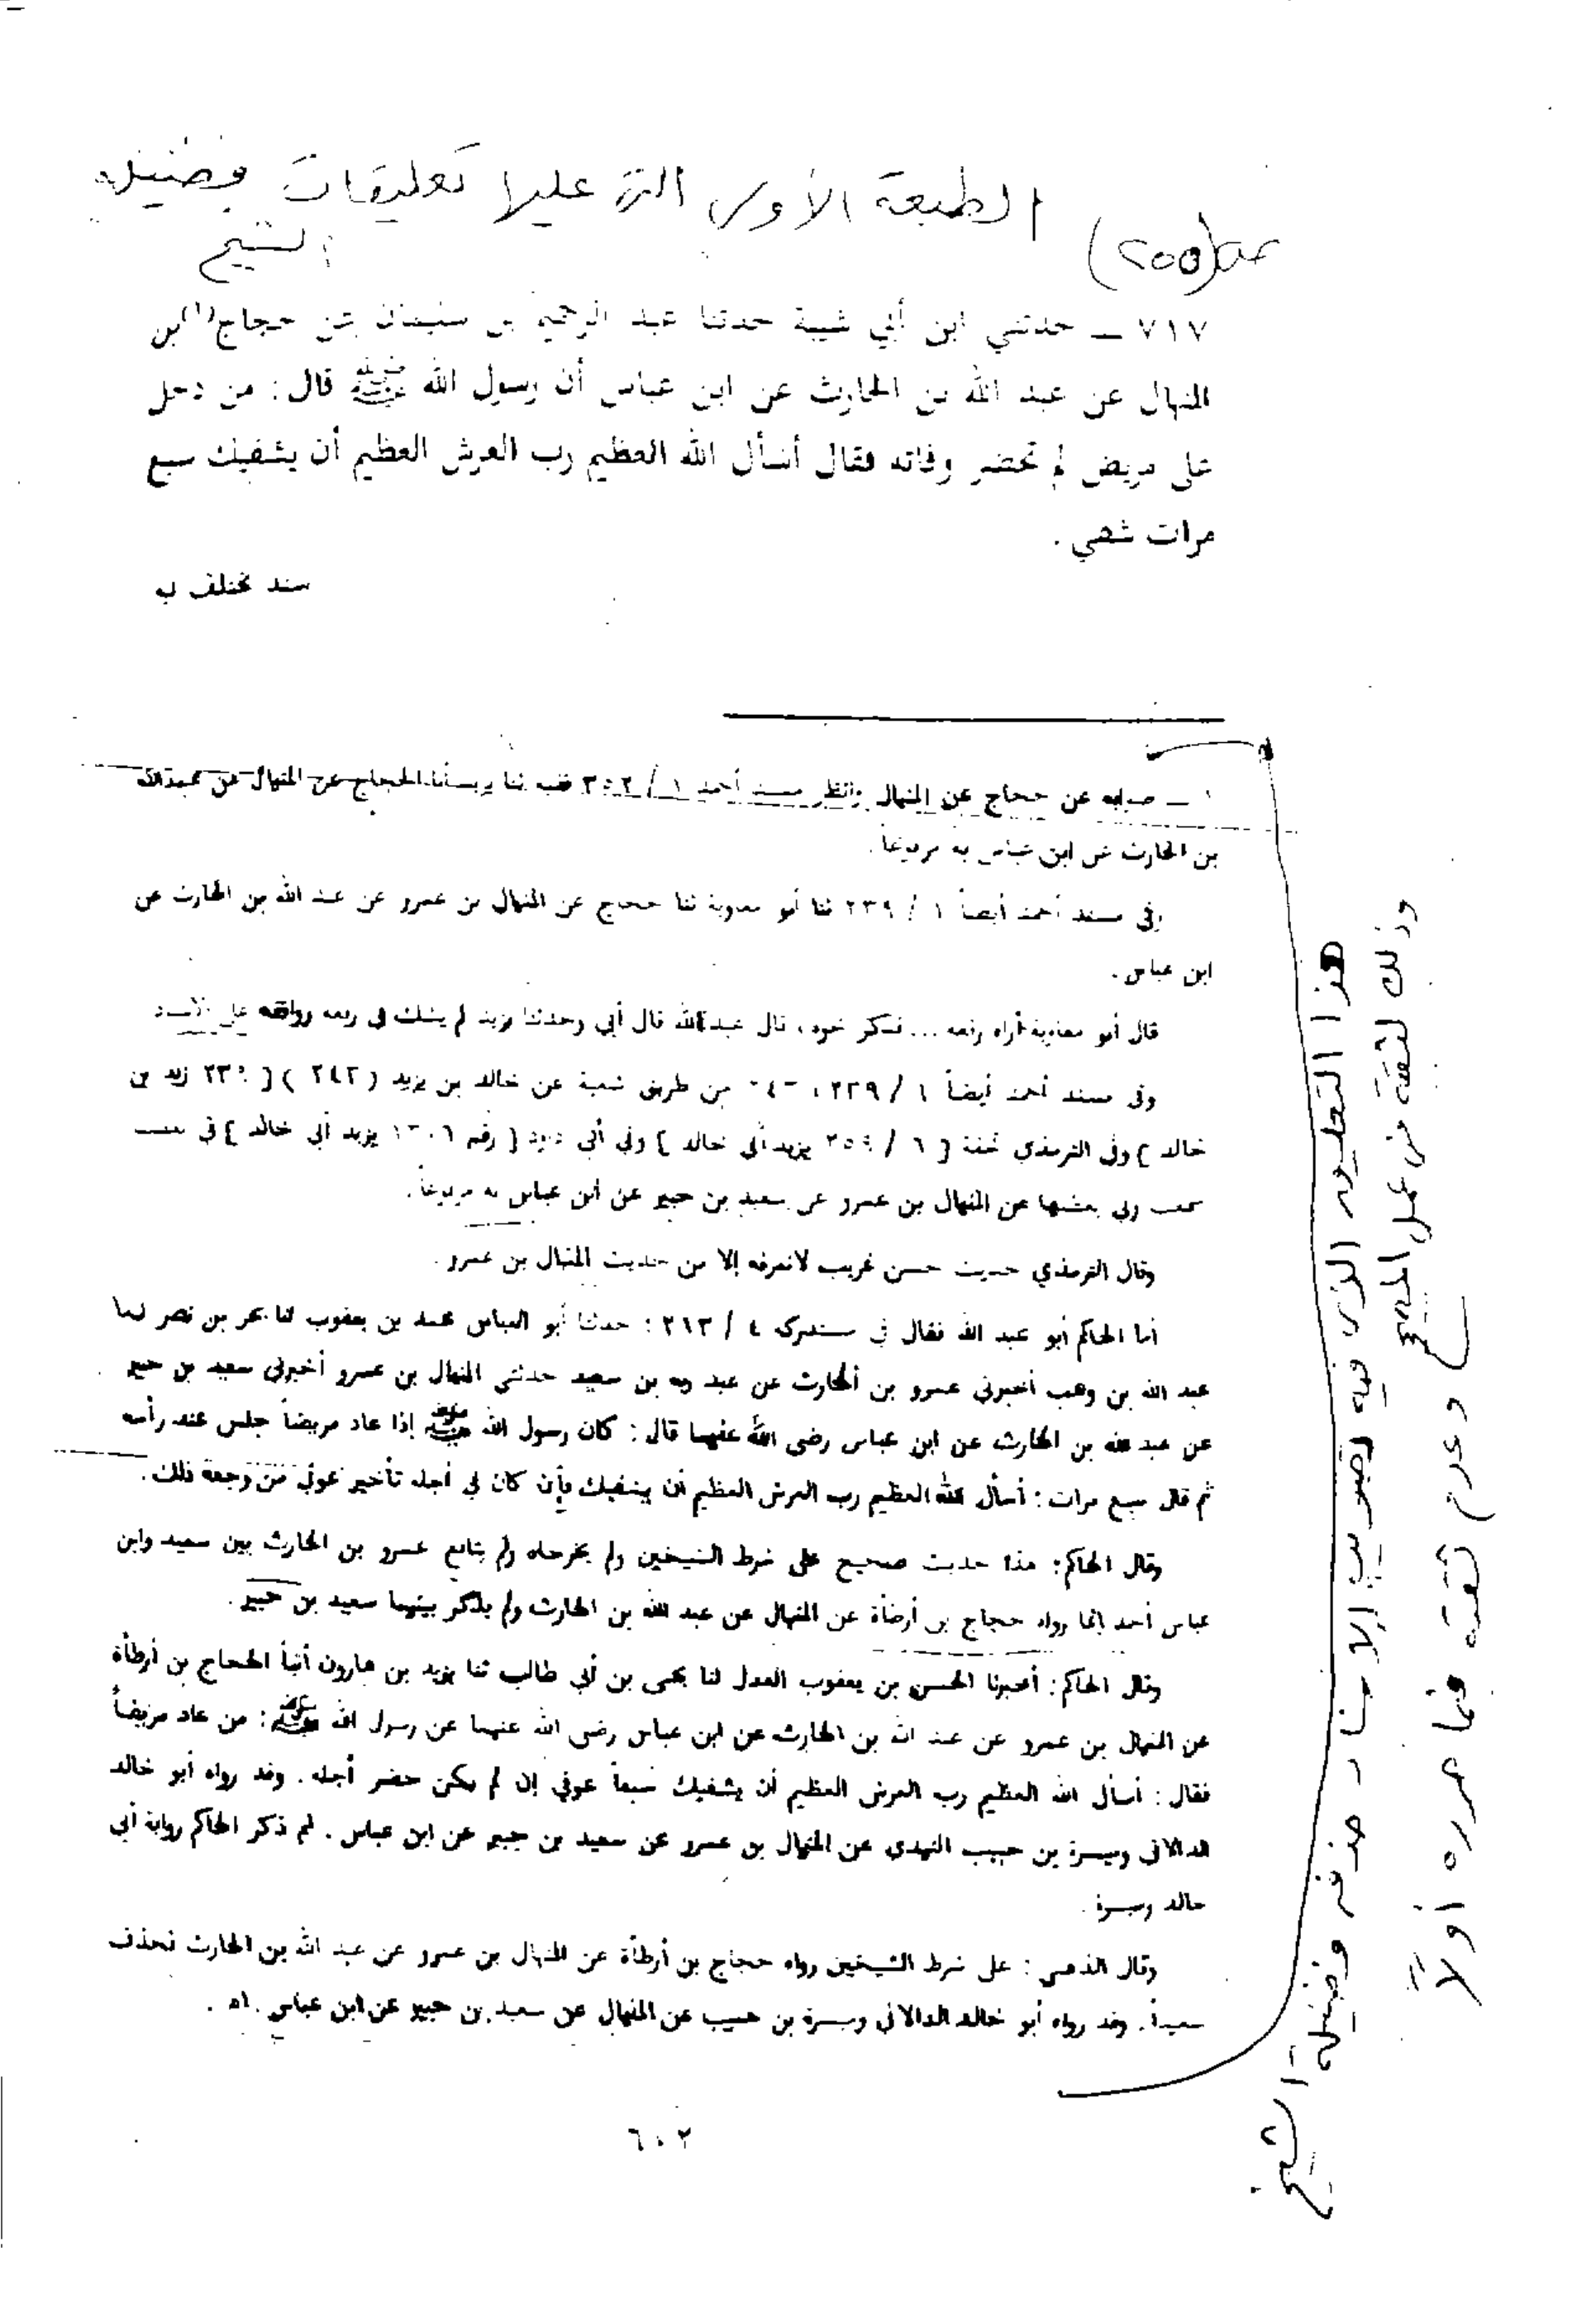 الطبعة الأولى التي عليها تعليقات فضيلة
الشيخ
ص(٢٥٥)
٧١٧ ــ حدثني ابن أبي شيبة حدثنا عبد الرحيم بن سليمان عن حجاج(١) ابن
المنهال عن عبد الله بن الحارث عن ابن عباس أن رسول الله ﷺ قال : من دخل
على مريض لم تحضر وفاته فقال أسأل الله العظيم رب العرش العظيم أن يشفيك سبع
مرات شفي .
سند مختلف
١ ــ صوابه عن حجاج عن المنهال وانظر مسند أحمد ١ / ٣٥٢ ففيه ثنا يزيد أنا الحجاج عن المنهال عن عبدالله
بن الحارث عن ابن عباس به مرفوعاً .
وفي مسند أحمد أيضاً ١ / ٢٣٩ ثنا أبو معاوية ثنا حجاج عن المنهال بن عمرو عن عبد الله بن الحارث عن
ابن عباس .
قال أبو معاوية أراه رفعه ... فذكر نحوه ، قال عبدالله قال أبي وحدثنا يزيد لم يشك في رفعه ووافقه على الإسناد
وفي مسند أحمد أيضاً ١ / ٢٣٩ ، من طريق شعبة عن خالد بن يزيد ( ٢٤٣ ) [ يزيد بن
خالد ] وفي الترمذي تحفة [ ٦ / ٢٥٩ يزيد أبي خالد ] وفي أبي داود [ رقم ٣١٠٦ يزيد أبي خالد ] في
وفي بعضها عن المنهال بن عمرو عن سعيد بن جبير عن ابن عباس به مرفوعاً .
وقال الترمذي حديث حسن غريب لانعرفه إلا من حديث المنهال بن عمرو .
أما الحاكم أبو عبد الله فقال في مستدركه ٤ / ٢١٣ : حدثنا أبو العباس محمد بن يعقوب ثنا بحر بن نصر ثنا
عبد الله بن وهب أخبرني عمرو بن الحارث عن عبد ربه بن سعيد حدثني المنهال بن عمرو أخبرني سعيد بن جبير
عن عبد الله بن الحارث عن ابن عباس رضى الله عنهما قال : كان رسول الله ﷺ إذا عاد مريضاً جلس عند رأسه
ثم قال سبع مرات : أسأل الله العظيم رب العرش العظيم أن يشفيك فإن كان في أجله تأخير عوفي من وجعه ذلك .
وقال الحاكم : هذا حديث صحيح على شرط الشيخين ولم يخرجاه ولم يتابع عمرو بن الحارث بين سعيد وابن
عباس أحد إنما رواه حجاج بن أرطأة عن المنهال عن عبد الله بن الحارث ولم يذكر بينهما سعيد بن جبير .
وقال الحاكم : أخبرنا الحسن بن يعقوب العدل ثنا يحيى بن أبي طالب ثنا يزيد بن هارون أنبأ الحجاج بن أرطأة
عن المنهال بن عمرو عن عبد الله بن الحارث عن ابن عباس رضى الله عنهما عن رسول الله ﷺ : من عاد مريضاً
فقال : أسأل الله العظيم رب العرش العظيم أن يشفيك سبعاً عوفي إن لم يكن حضر أجله . وقد رواه أبو خالد
الدالاني وميسرة بن حبيب النهدي عن المنهال بن عمرو عن سعيد بن جبير عن ابن عباس . ثم ذكر الحاكم رواية أبي
خالد وميسرة .
وقال الذهبي : على شرط الشيخين رواه حجاج بن أرطأة عن المنهال بن عمرو عن عبد الله بن الحارث فحذف
سعيداً . وقد رواه أبو خالد الدالاني وميسرة بن حبيب عن المنهال عن سعيد بن جبير عن ابن عباس . اه .
٦٠٢
هذا التعليق الذي فيه تصويب الإسناد حذفه فضيلة الشيخ
وذلك لثقته في عمل المصحح
وعدم ثقته فيما حرره أولاً